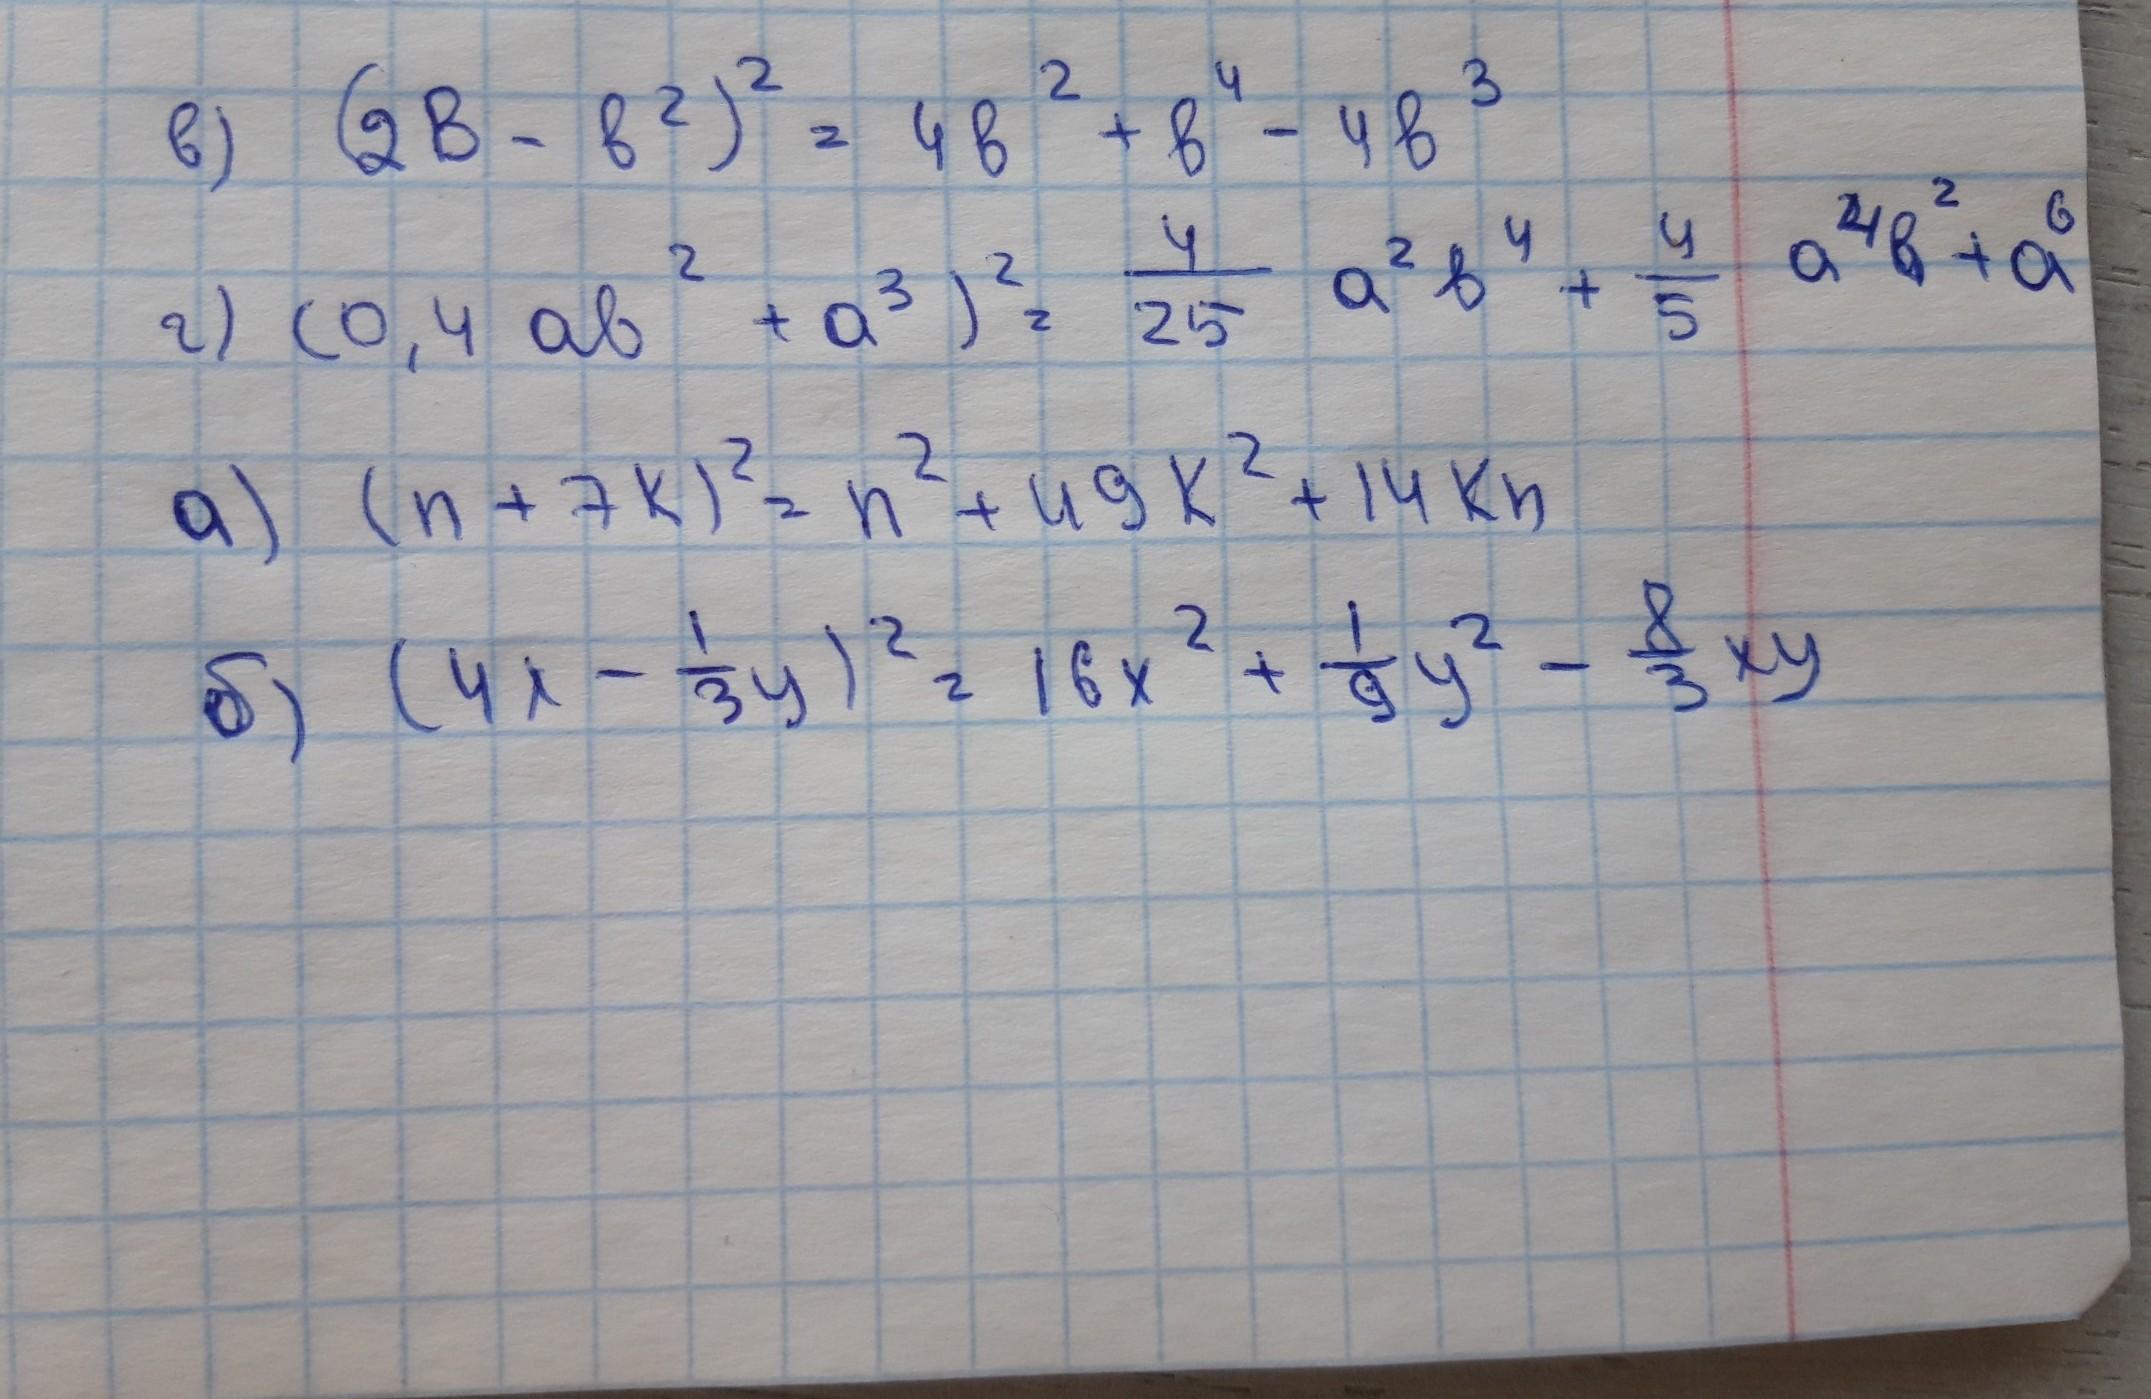 в) (2в - в²)² = 4в² + в⁴ - 4в³
г) (0,4 ав² + а³)² = 4/25 а²в⁴ + 4/5 а⁴в² + а⁶
а) (n + 7k)² = n² + 49k² + 14kn
б) (4x - 1/3y)² = 16x² + 1/9y² - 8/3xy